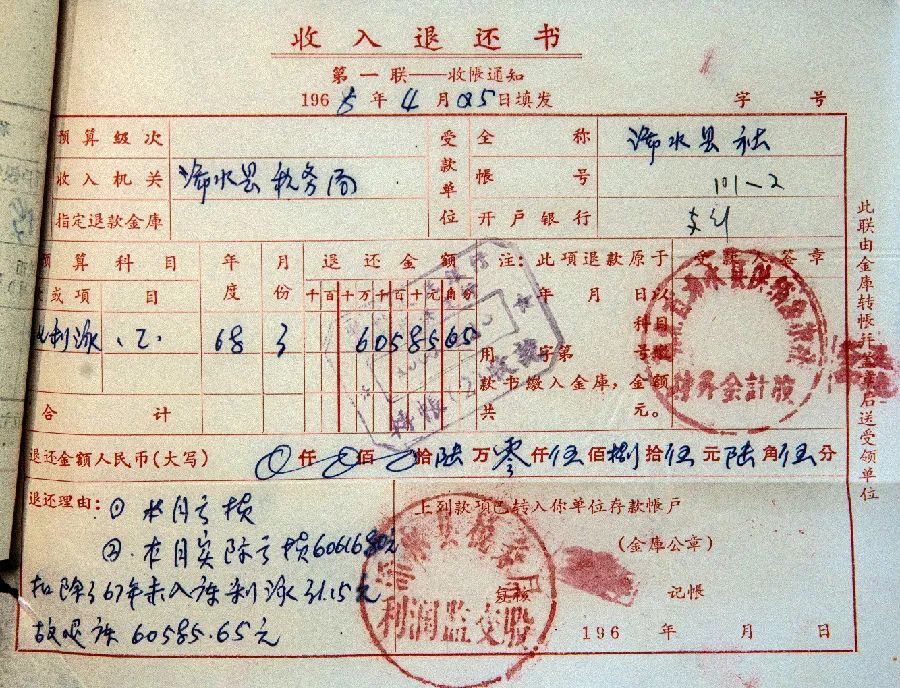 收入退还书
第一联——收帐通知
1968年4月05日填发 字 号
预算级次
收入机关 浠水县税务局
指定退款金库
受款单位
全称 浠水县社
帐号 101-2
开户银行 支行
预算科目 年度 月份 退还金额
款或项 目 千百十万千百十元角分
68 3 6058565
合计
注：此项退款原于
年 月 日以
科目
用 字第 号缴
款书缴入金库，金额
共 元。
受款人签章
财务会计股
转帐
退还金额人民币(大写) 0仟0佰0拾陆万零仟伍佰捌拾伍元陆角伍分
退还理由：① 本月亏损
② 本月实际亏损60616.80元
扣除了67年未入库利润31.15元
故退库60585.65元
上列款项已转入你单位存款帐户
(金库公章)
复核 记帐
196 年 月 日
利润监交股
此联由金库转帐并盖章后送受领单位